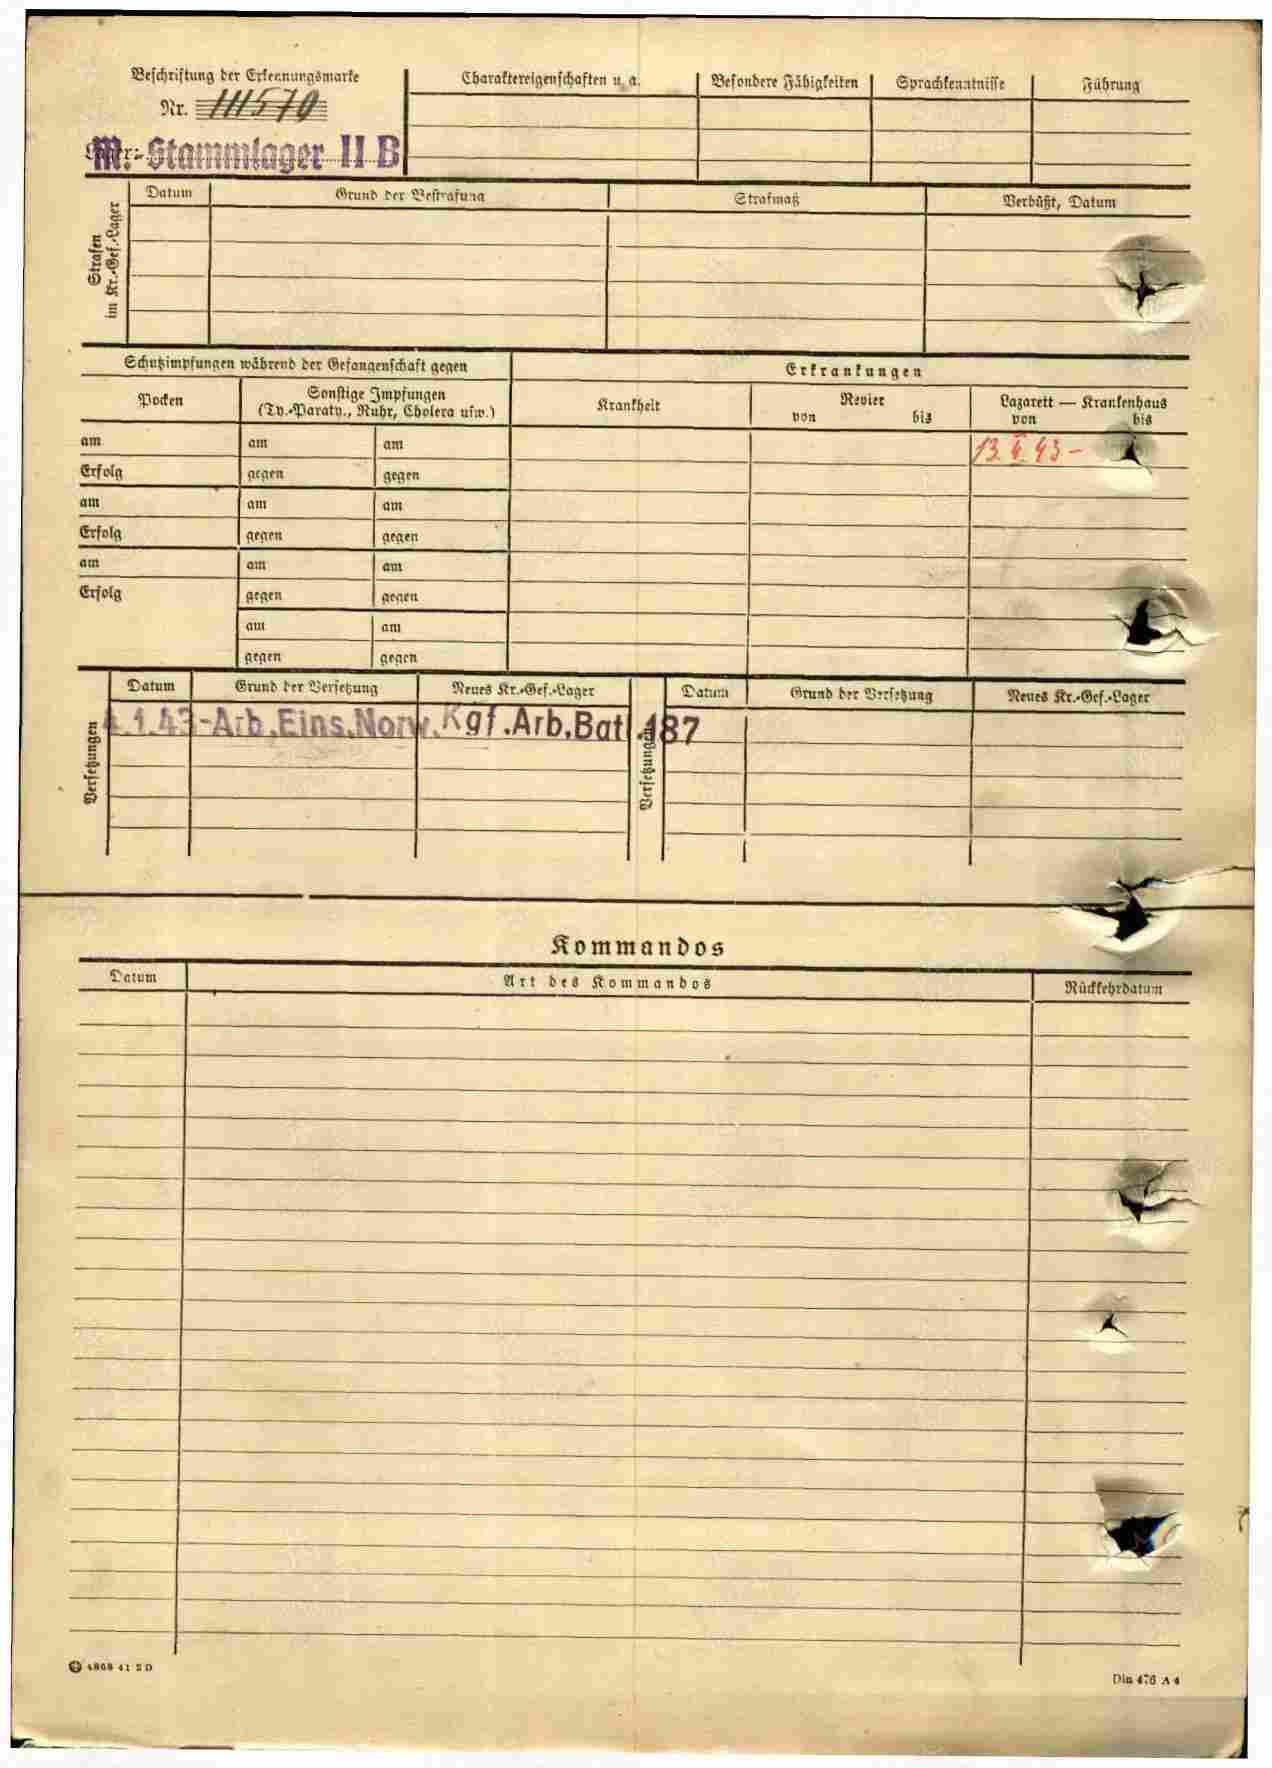 Beschriftung der Erkennungsmarke
Nr. 111570
M.-Stammlager II B
Charaktereigenschaften u. a.
Besondere Fähigkeiten
Sprachkenntnisse
Führung
Strafen
im Kr.-Gef.-Lager
Datum
Grund der Bestrafung
Strafmaß
Verbüßt, Datum
Schutzimpfungen während der Gefangenschaft gegen
Erkrankungen
Pocken
Sonstige Impfungen
(Ty.-Paraty., Ruhr, Cholera usw.)
Krankheit
Revier
von bis
Lazarett — Krankenhaus
von bis
am am am
13. 43 -
Erfolg gegen gegen
am am am
Erfolg gegen gegen
am am am
Erfolg gegen gegen
am am
gegen gegen
Versetzungen
Datum
Grund der Versetzung
Neues Kr.-Gef.-Lager
Versetzungen
Datum
Grund der Versetzung
Neues Kr.-Gef.-Lager
4.1.43-Arb.Eins.Norw. Kgf.Arb.Batl.187
Kommandos
Datum
Art des Kommandos
Rückkehrdatum
4868 41 2 D
Din 476 A 4